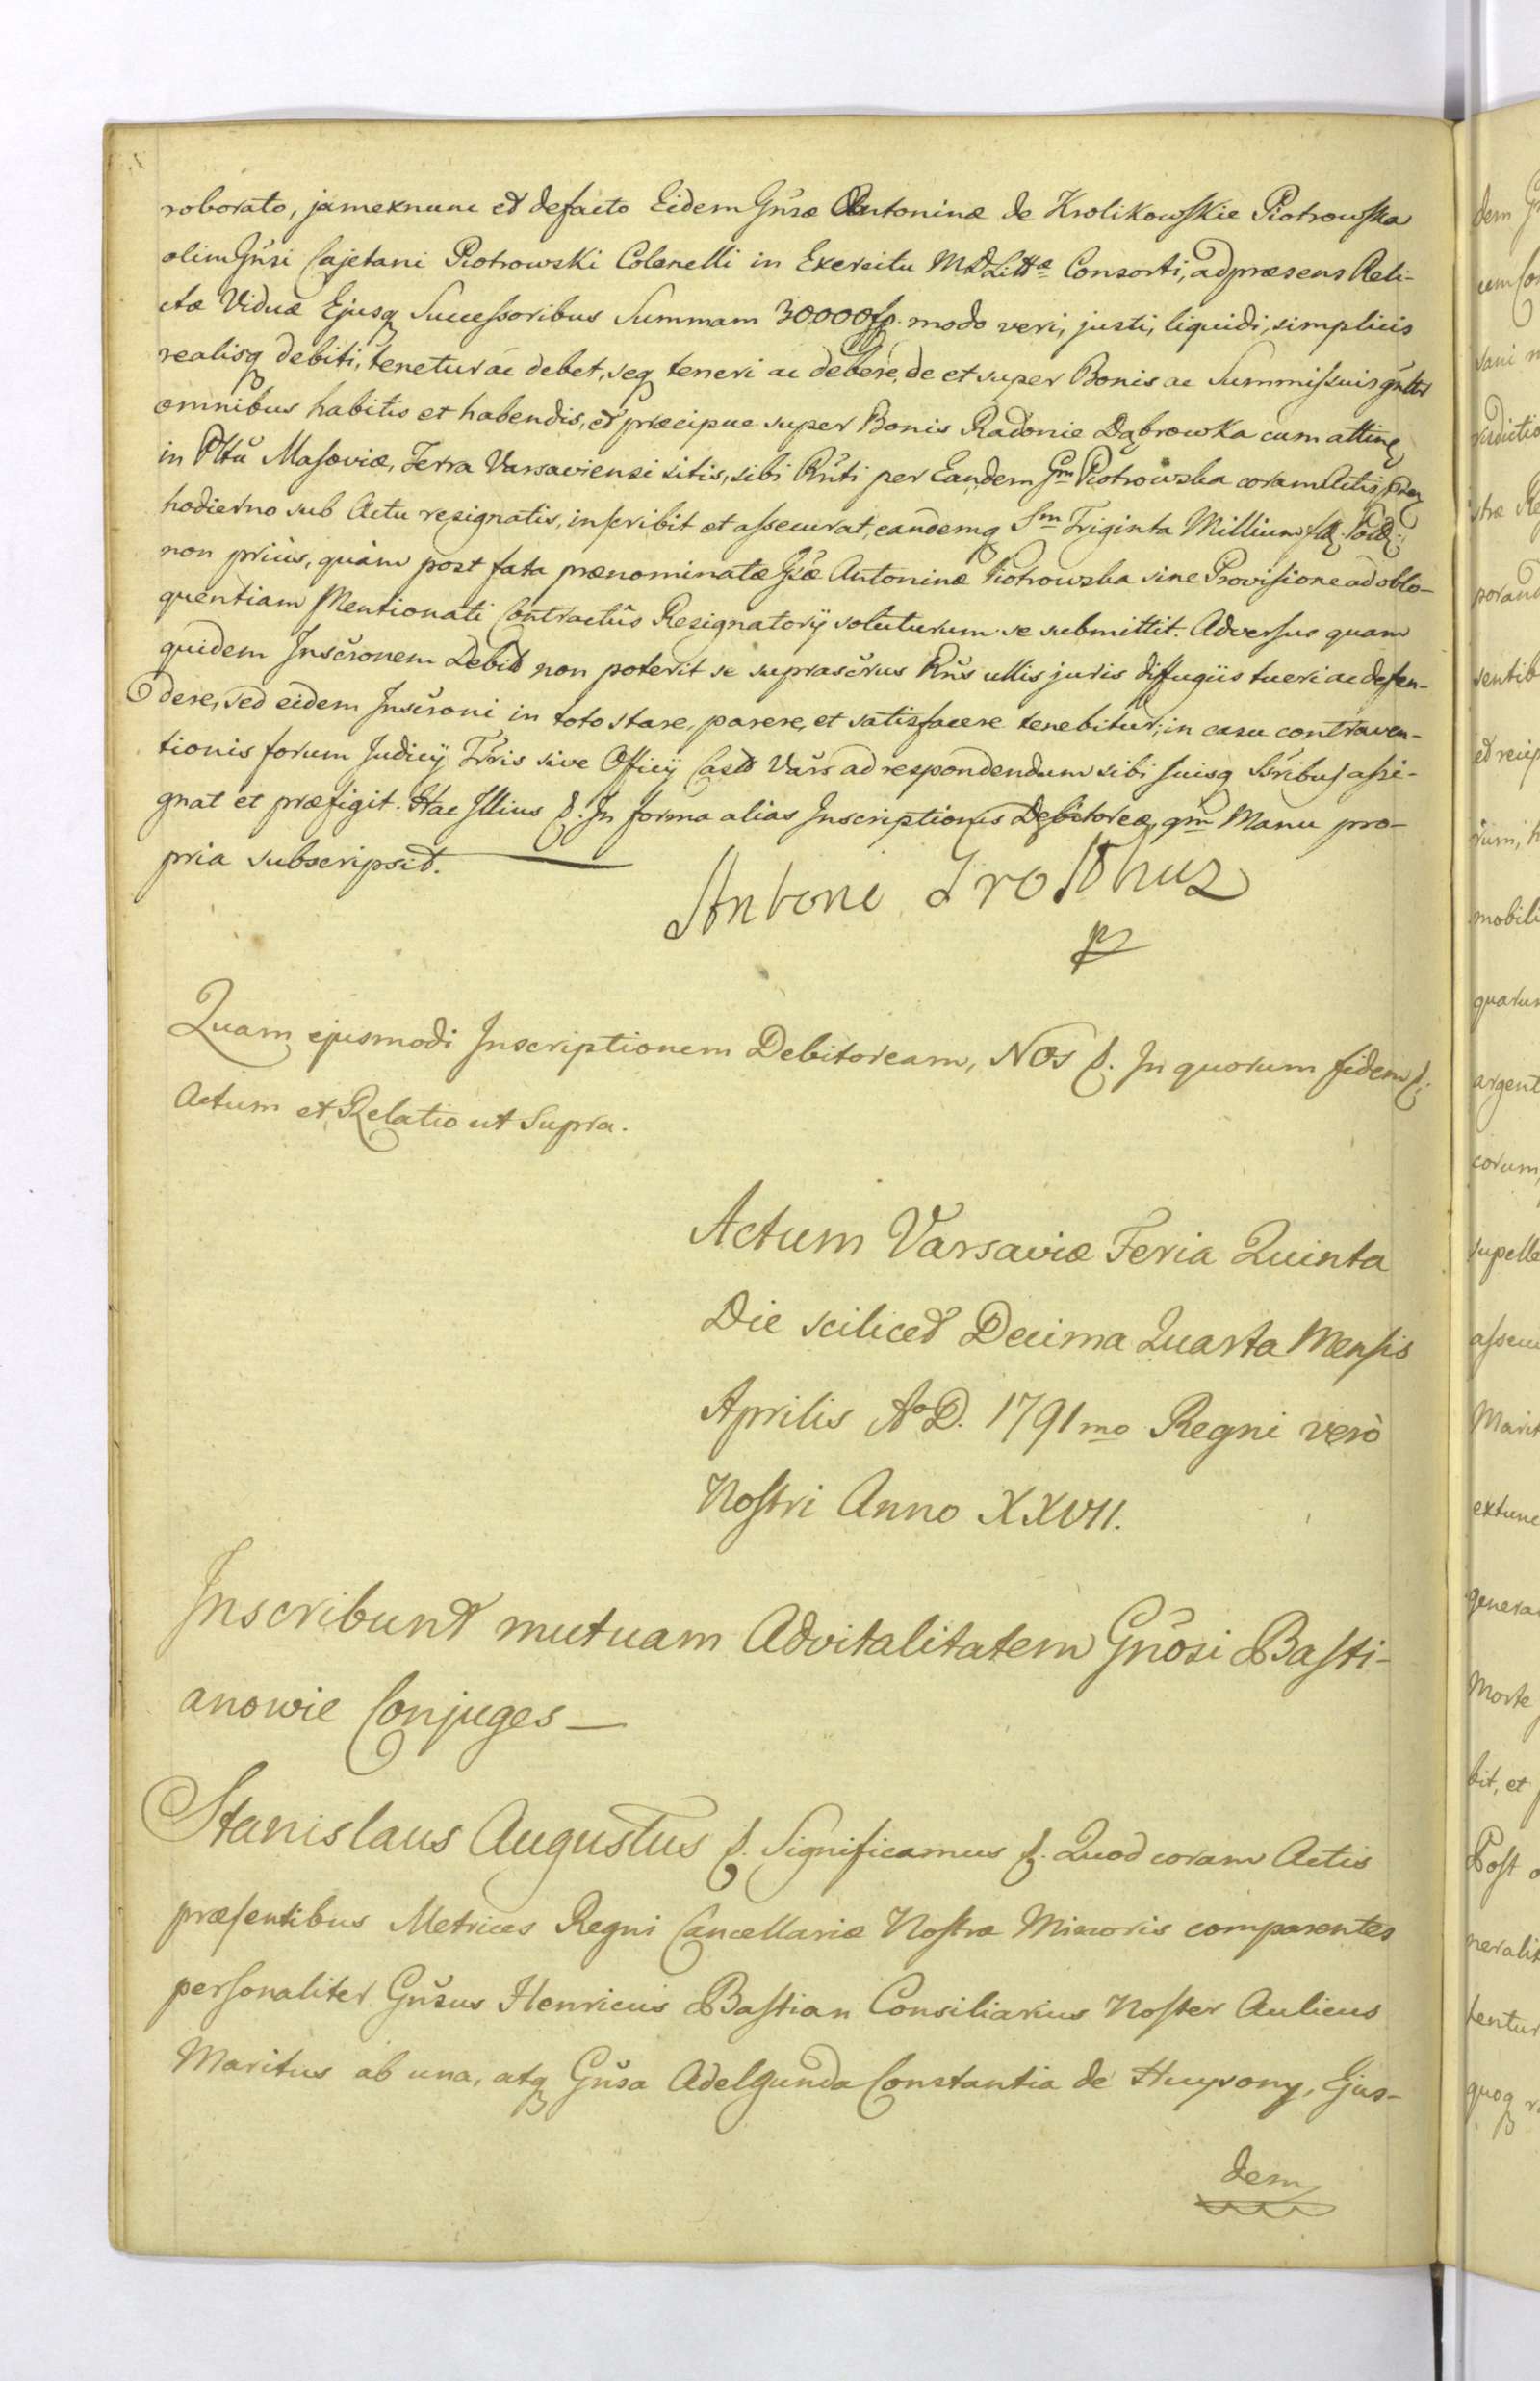 roborato, jamexnunc et defacto Eidem Gnsæ Antoninæ de Krolikowskie Piotrowska
olim Gnsi Cajetani Piotrowski Colonelli in Exercitu MDLittæ Consorti, ad præsens Reli-
ctæ Viduæ Ejusq Successoribus Summam 30000 fp. modo veri, justi, liquidi, simplicis
realisq debiti, tenetur ac debet, seq teneri ac debere, de et super Bonis ac Summis suis gnltr
omnibus habitis et habendis, et præcipue super Bonis Radonie Dąbrowka cum attinen
in Pttu Masoviæ, Terra Varsaviensi sitis, sibi Rnti per Eandem Gm Piotrowska coram Actis
hodierno sub Actu resignatis, inscribit et assecurat, eandemq Sm Triginta Millium
non priùs, quàm post fata prænominatæ Gsæ Antoninæ Piotrowska sine Provisione ad oblo-
quentiam Mentionati Contractûs Resignatorij soluturum se submittit. Adversus quam
quidem Inscronem Debit non poterit se suprascrus Rns ullis juris diffugiis tueri ac defen-
dere, sed eidem Inscroni in toto stare, parere, et satisfacere tenebitur; in casu contraven-
tionis forum Judicij Trris sive Officij Casts Vars ad respondendum sibi suisq Ssribus assi-
gnat et præfigit. Hac Illius p. In forma alias Inscriptionis Debitoreæ, qm Manu pro-
pria subscripsit.
Antoni Trosthuz
Quam ejusmodi Inscriptionem Debitoream, Nos p. In quorum fidem p.
Actum et Relatio ut Supra.
Actum Varsaviæ Feria Quinta
Die scilicet Decima Quarta Mensis
Aprilis Ao D. 1791mo Regni verò
Nostri Anno XXVII.
Inscribunt mutuam Advitalitatem Gnosi Basti-
anowie Conjuges
Stanislaus Augustus p. Significamus p. Quod coram Actis
præsentibus Metrices Regni Cancellariæ Nostræ Minoris comparentes
personaliter Gnsus Henricus Bastian Consiliarius Noster Aulicus
Maritus ab una, atq Gnsa Adelgunda Constantia de Huysony, Ejus-
dem